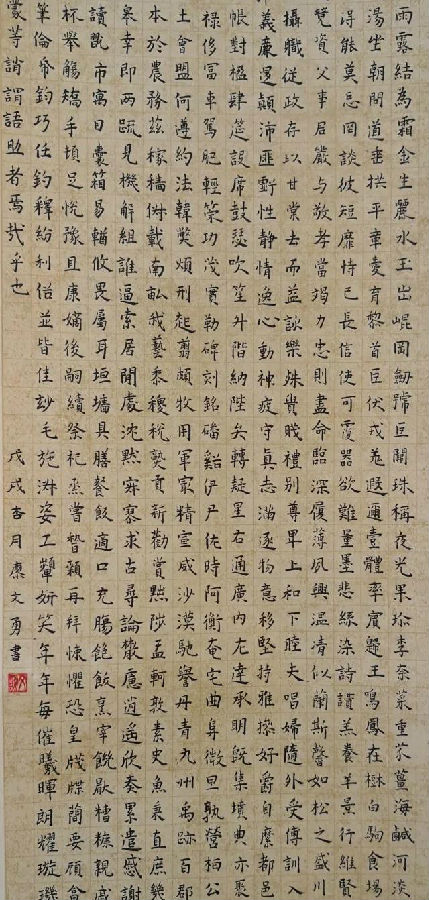 雨露結為霜金生麗水玉出崐岡劍號巨闕珠稱夜光果珍李柰菜重芥薑海鹹河淡
湯坐朝問道垂拱平章愛育黎首臣伏戎羌遐邇壹體率賓歸王鳴鳳在樹白駒食場
得能莫忘罔談彼短靡恃己長信使可覆器欲難量墨悲絲染詩讚羔養羊景行維賢
競資父事君嚴与敬孝當竭力忠則盡命臨深履薄夙興溫凊似蘭斯馨如松之盛川
攝職從政存以甘棠去而益詠樂殊貴賤禮別尊卑上和下睦夫唱婦隨外受傅訓入
義廉退顛沛匪虧性靜情逸心動神疲守真志滿逐物意移堅持雅操好爵自縻都邑
帳對楹肆筵設席鼓瑟吹笙升階納陛弁轉疑星右通廣內左達承明既集墳典亦聚
祿侈富車駕肥輕策功茂實勒碑刻銘磻谿伊尹佐時阿衡奄宅曲阜微旦孰營桓公
土會盟何遵約法韓弊煩刑起翦頗牧用軍最精宣威沙漠馳譽丹青九州禹跡百郡
本於農務茲稼穡俶載南畝我藝黍稷稅熟貢新勸賞黜陟孟軻敦素史魚秉直庶幾
皋幸即兩疏見機解組誰逼索居閒處沈默寂寥求古尋論散慮逍遙欣奏累遣慼謝
讀翫市寓目囊箱易輶攸畏屬耳垣墻具膳餐飯適口充腸飽飫烹宰飢厭糟糠親戚
杯舉觴矯手頓足悅豫且康嫡後嗣續祭祀烝嘗稽顙再拜悚懼恐惶牋牒簡要顧答
筆倫紙鈞巧任釣釋紛利俗並皆佳妙毛施淑姿工顰妍笑年年每催曦暉朗耀璇璣
蒙等誚謂語助者焉哉乎也
戊戌杏月糜文勇書